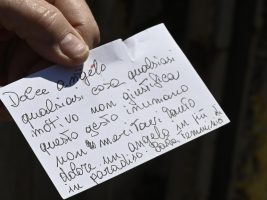 Dolce angelo
qualsiasi cosa qualsiasi
motivo non giustifica
questo gesto inumano
non meritavi questo
dolore un angelo in più
in paradiso. Basta femminicidi